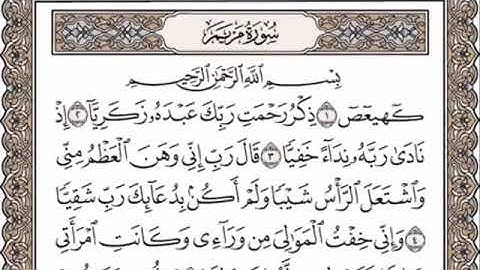 سُورَةُ مَرْيَمَ
بِسْمِ ٱللَّهِ ٱلرَّحْمَٰنِ ٱلرَّحِيمِ
كٓهيعٓصٓ ١ ذِكْرُ رَحْمَتِ رَبِّكَ عَبْدَهُۥ زَكَرِيَّآ ٢ إِذْ
نَادَىٰ رَبَّهُۥ نِدَآءً خَفِيًّا ٣ قَالَ رَبِّ إِنِّى وَهَنَ ٱلْعَظْمُ مِنِّى
وَٱشْتَعَلَ ٱلرَّأْسُ شَيْبًا وَلَمْ أَكُنۢ بِدُعَآئِكَ رَبِّ شَقِيًّا
٤ وَإِنِّى خِفْتُ ٱلْمَوَٰلِىَ مِن وَرَآءِى وَكَانَتِ ٱمْرَأَتِى